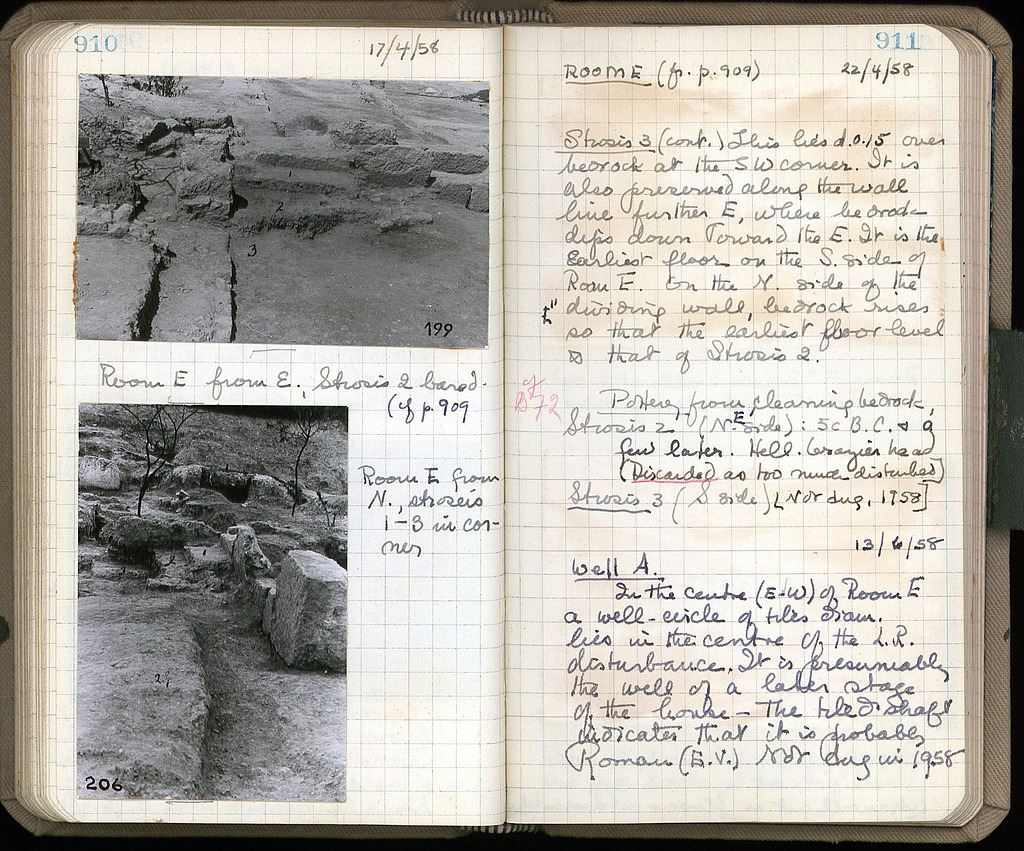 910
17/4/58
1
2
3
199
Room E from E. Strosis 2 bared.
(cf p. 909
Room E from
N., stroseis
1-3 in cor-
ner
1
2
206
911
ROOM E (fr. p. 909)
22/4/58
Strosis 3 (cont.) This lies d. 0.15 over
bedrock at the SW corner. It is
also preserved along the wall
line further E, where bedrock
dips down toward the E. It is the
Earliest floor on the S. side of
Room E. On the N. side of the
dividing wall, bedrock rises
so that the earliest floor level
is that of Strosis 2.
Pottery from cleaning bedrock,
Strosis 2 (N. E side): 5c B.C. & a
few later. Hell. brazier head
[Discarded as too much disturbed]
Strosis 3 (S side) [Not dug, 1958]
13/6/58
Well A.
In the centre (E-W) of Room E
a well-circle of tiles diam.
lies in the centre of the L.R.
disturbance. It is presumeably
the well of a later stage
of the house - The tiled shaft
indicates that it is probably
Roman (E.V.) Not dug in 1958